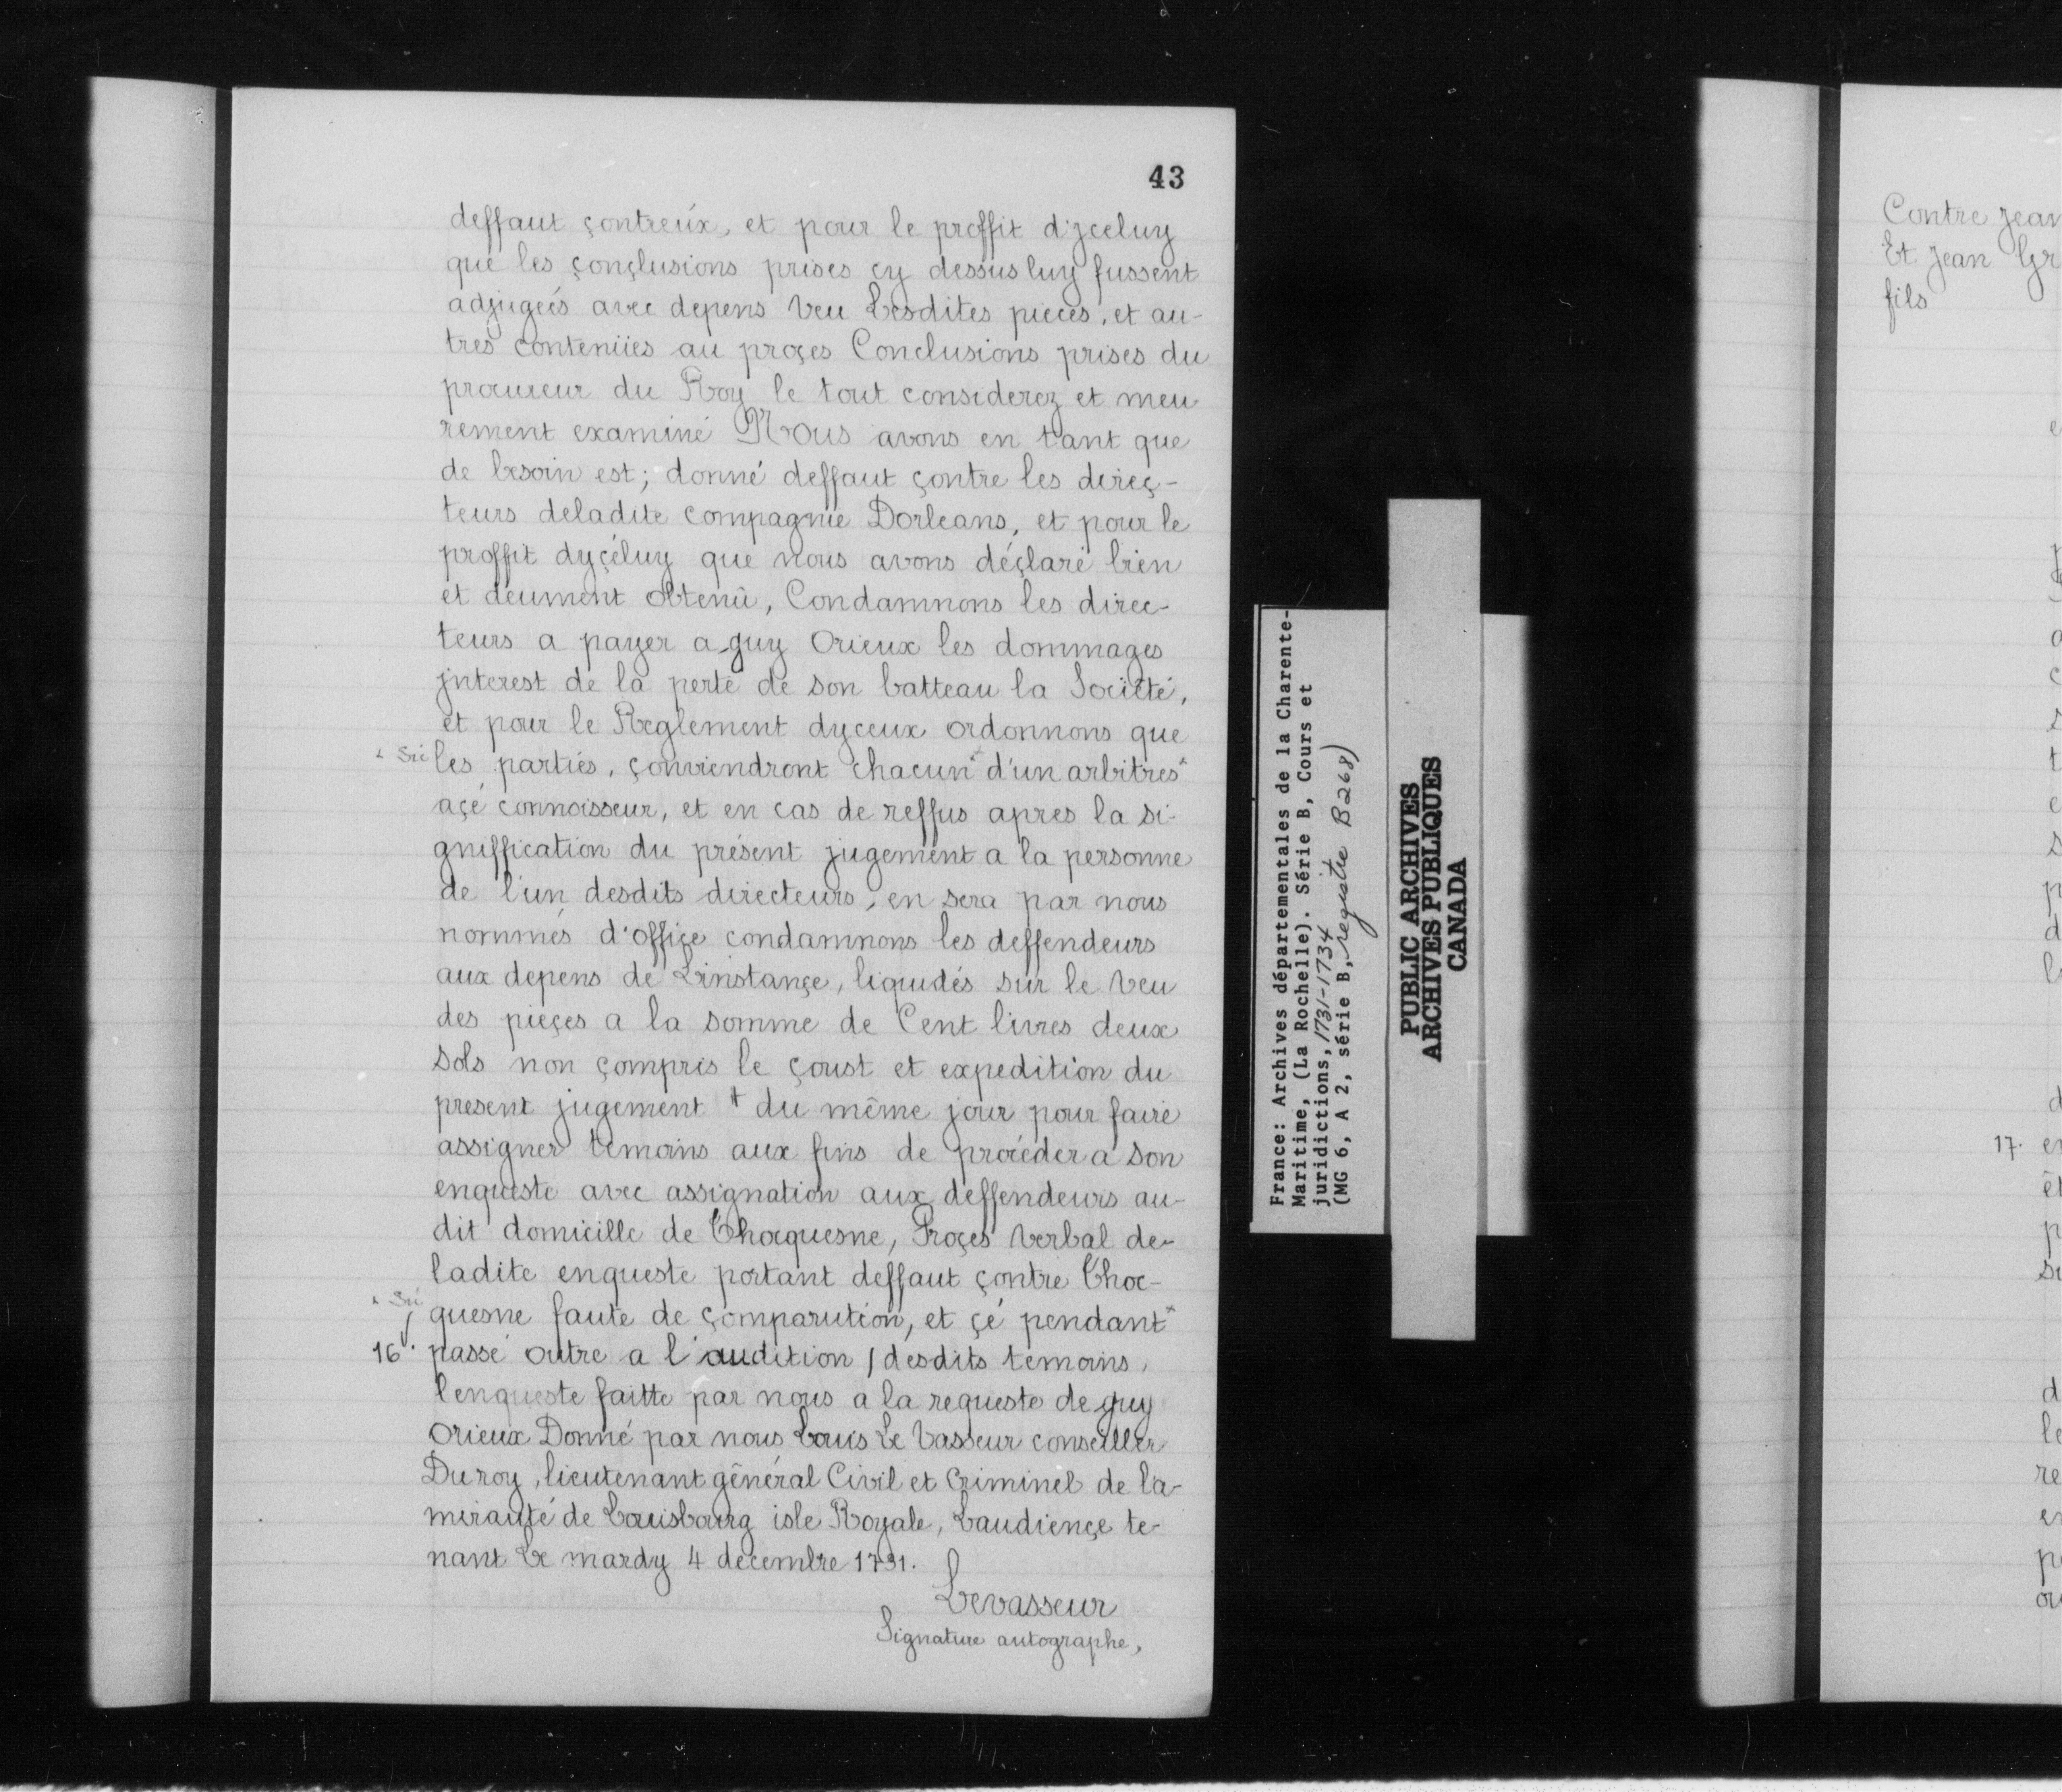 43
deffaut çontreúx, et pour le proffit d'jceluy
que les çonçlusions prises çy dessus luy fussent
adjugeés avec depens Veu Lesdites pieces, et au-
tres contenües au proçes Conclusions prises du
procureur du Roy le tout considerez et meu
rement examiné Nous avons en tant que
de besoin est; donné deffaut çontre les direç-
teurs deladite compagnie Dorleans, et pour le
proffit dyçéluy que nous avons déçlaré bien
et deument obtenû, Condamnons les direc-
teurs a payer a guy Orieux les dommages
jnterest de la perte de son batteau la Société,
et pour le Reglement dyceux ordonnons que
x Sic les parties, çonviendront chacun x d'un arbitres x
açé connoisseur, et en cas de reffus apres la si-
gniffication du présent jugement a la personne
de l'un desdits directeurs, en sera par nous
nommés d'offiçe condamnons les deffendeurs
aux depens de Linstançe, liquidés sur le Veu
des pieçes a la somme de Cent livres deux
sols non çompris le çoust et expedition du
present jugement + du même jour pour faire
assigner temoins aux fins de proceder a son
enqueste avec assignation aux deffendeurs au-
dit domicille de Chocquesne, Proçes Verbal de-
ladite enqueste portant deffaut çontre Choc-
x Sic quesne faute de çomparution, et çé pendant x
16. passé outre a l'audition / desdits temoins,
lenqueste faitte par nous a la requeste de guy
Orieux Donné par nous Louis Le Vasseur conseiller
Du roy, lieutenant général Civil et Criminel de la-
mirauté de Louisbourg isle Royale, Laudiençe te-
nant Le mardy 4 decembre 1731.
Levasseur
Signature autographe,
France: Archives départementales de la Charente-
Maritime, (La Rochelle). Série B, Cours et
juridictions, 1731-1734
(MG 6, A 2, série B, registre B268)
PUBLIC ARCHIVES
ARCHIVES PUBLIQUES
CANADA
Contre Jean
Et Jean Gr
fils
17.